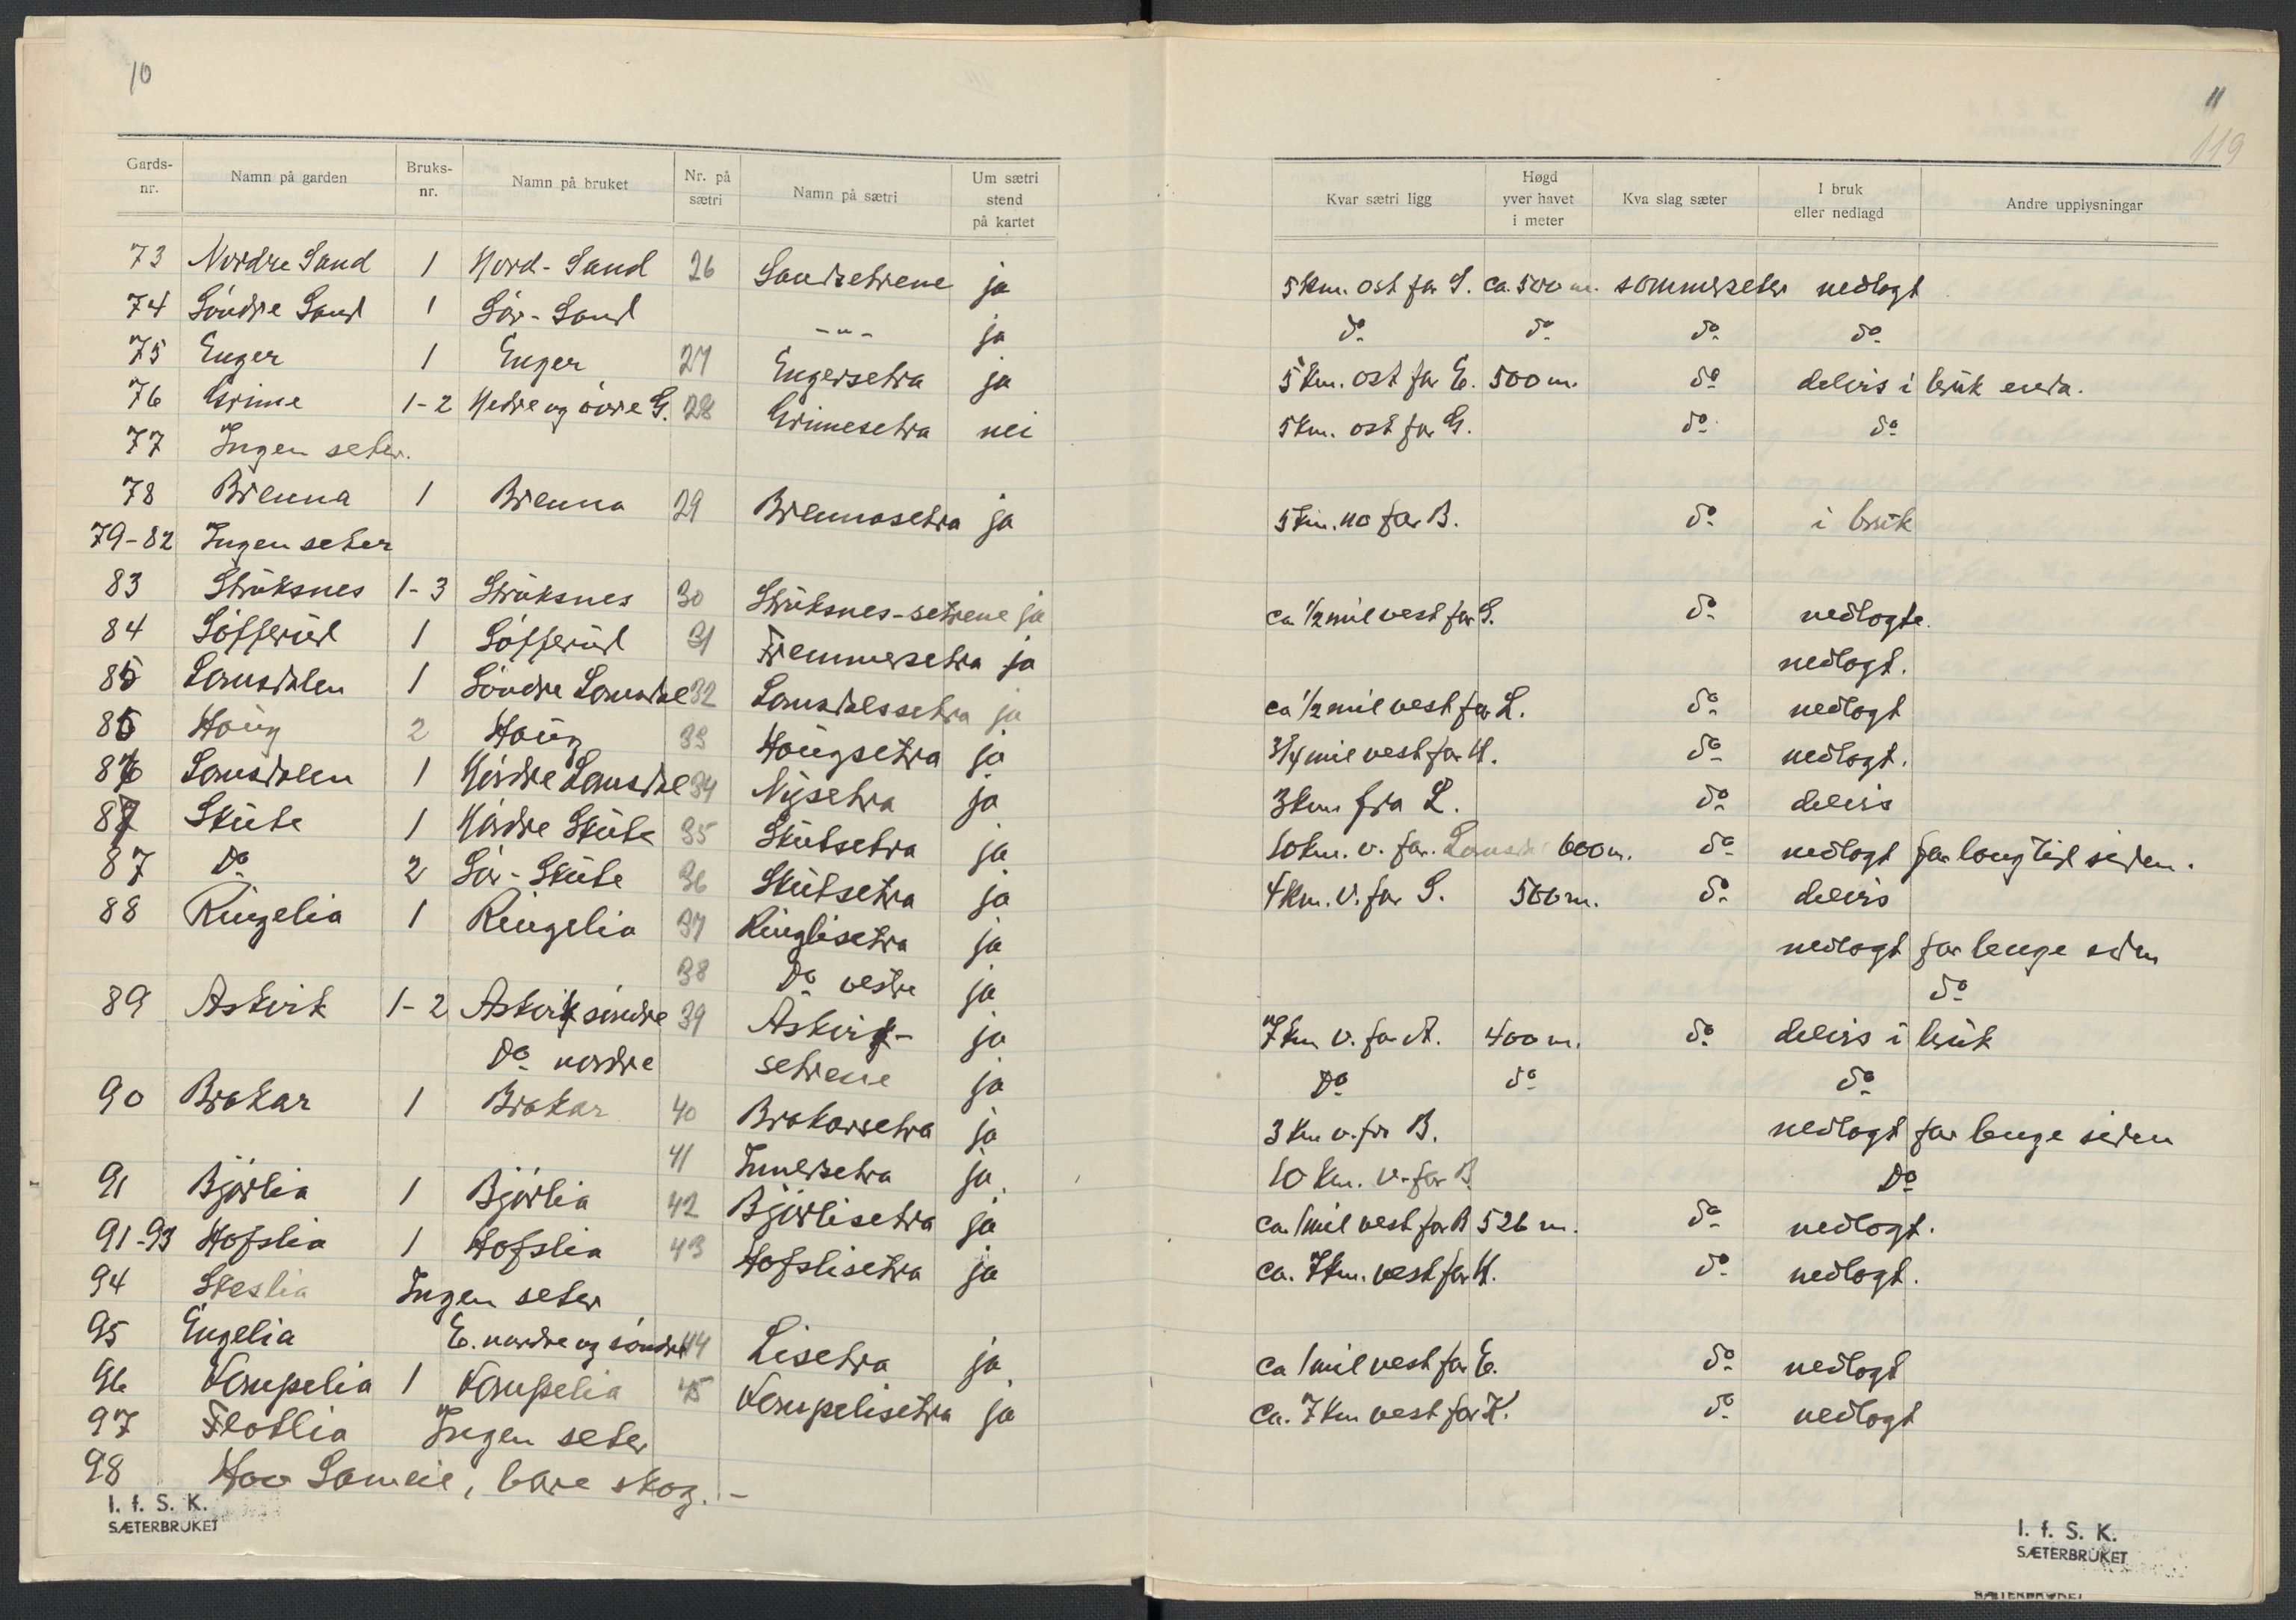 10
Gards-nr. Namn på garden Bruks-nr. Namn på bruket Nr. på sætri Namn på sætri Um sætri stend på kartet
73 Nordre Sand 1 Nord-Sand 26 Sandsetrene ja
74 Söndre Sand 1 Sör-Sand -"- ja
75 Enger 1 Enger 27 Engersetra ja
76 Grime 1-2 Nedre og övre G. 28 Grimesetra nei
77 Ingen seter.
78 Brenna 1 Brenna 29 Brennasetra ja
79-82 Ingen seter
83 Strüksnes 1-3 Strüksnes 30 Strüksnes-setrene ja
84 Söfferüd 1 Söfferüd 31 Fremmersetra ja
85 Lausdalen 1 Söndre Lausdal 32 Lausdalssetra ja
86 Haüg 2 Haüg 33 Haügsetra ja
86 Lausdalen 1 Nördre Lausdal 34 Nysetra ja
87 Sküte 1 Nördre Sküte 35 Skütsetra ja
87 Do 2 Sör-Sküte 36 Skütsetra ja
88 Ringelia 1 Ringelia 37 Ringlisetra ja
38 Do vestre ja
89 Askvik 1-2 Askvik söndre 39 Askvik- ja
Do nordre setrene ja
90 Brakar 1 Brakar 40 Brakarsetra ja
41 Innersetra ja.
91 Björlia 1 Björlia 42 Björlisetra ja
91-93 Hofslia 1 Hofslia 43 Hofslisetra ja
94 Steslia Ingen seter
95 Engelia E. nordre og söndre 44 Lisetra ja
96 Kampelia 1 Kampelia 45 Kampelisetra ja
97 Flatlia Ingen seter
98 Hov Sameie, bare skog. -
I. f. S. K.
SÆTERBRUKET
11
119
Kvar sætri ligg Høgd yver havet i meter Kva slag sæter I bruk eller nedlagd Andre upplysningar
5 km. ost for S. ca. 500 m. sommerseter nedlagt
do do do do
5 km. ost for E. 500 m. do delvis i brük enda.
5 km. ost for G. do do
5 km. no for B. do i brük
ca 1/2 mil vest for S. do nedlagte.
nedlagt.
ca 1/2 mil vest for L. do nedlagt
3/4 mil vest for H. do nedlagt.
3 km fra L. do delvis
10 km. v. for. 600 m. do nedlagt for lang tid siden.
4 km. v. for S. 500 m. do delvis
nedlagt for lenge siden
do
7 km v. for A. 400 m. do delvis i brük
Do do do
3 km v. for B. nedlagt for lenge siden
10 km. v. for B. Do
ca. 1 mil vest for B 526 m. do nedlagt.
ca. 7 km. vest for H. do nedlagt.
ca 1 mil vest for E. do nedlagt
ca. 7 km vest for K. do nedlagt
I. f. S. K.
SÆTERBRUKET